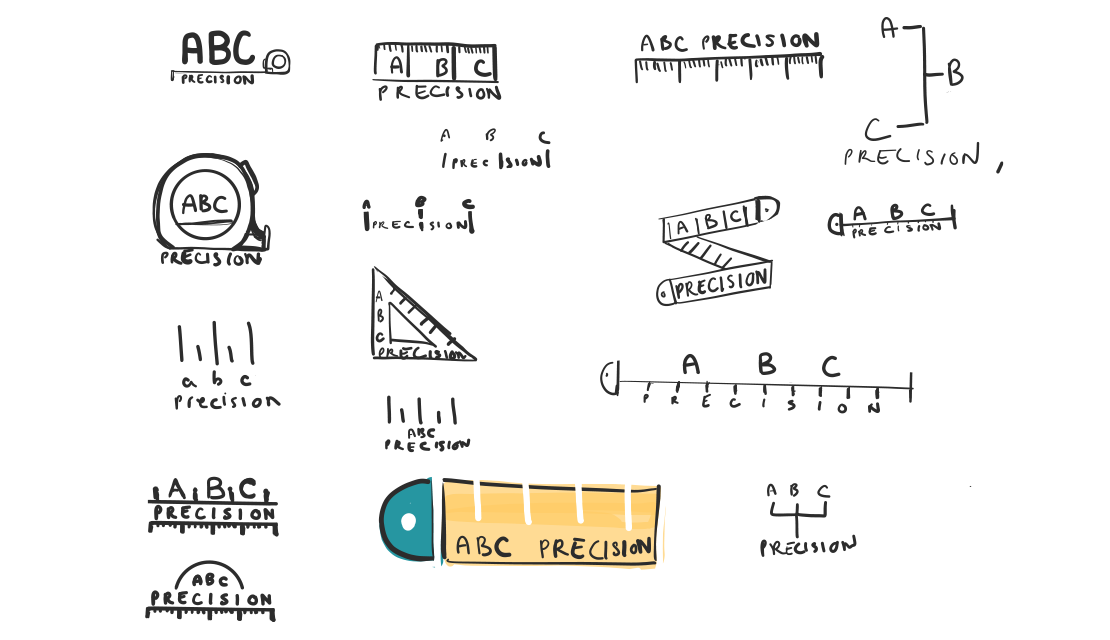 ABC
PRECISION
A B C
PRECISION
ABC PRECISION
A
B
C
PRECISION,
A B C
PRECISION
ABC
PRECISION
A B C
PRECISION
A B C
PRECISION
A B C
PRECISION
A
B
C
PRECISION
a b c
Precision
A B C
PRECISION
ABC
PRECISION
A B C
PRECISION
ABC PRECISION
A B C
PRECISION
ABC
PRECISION